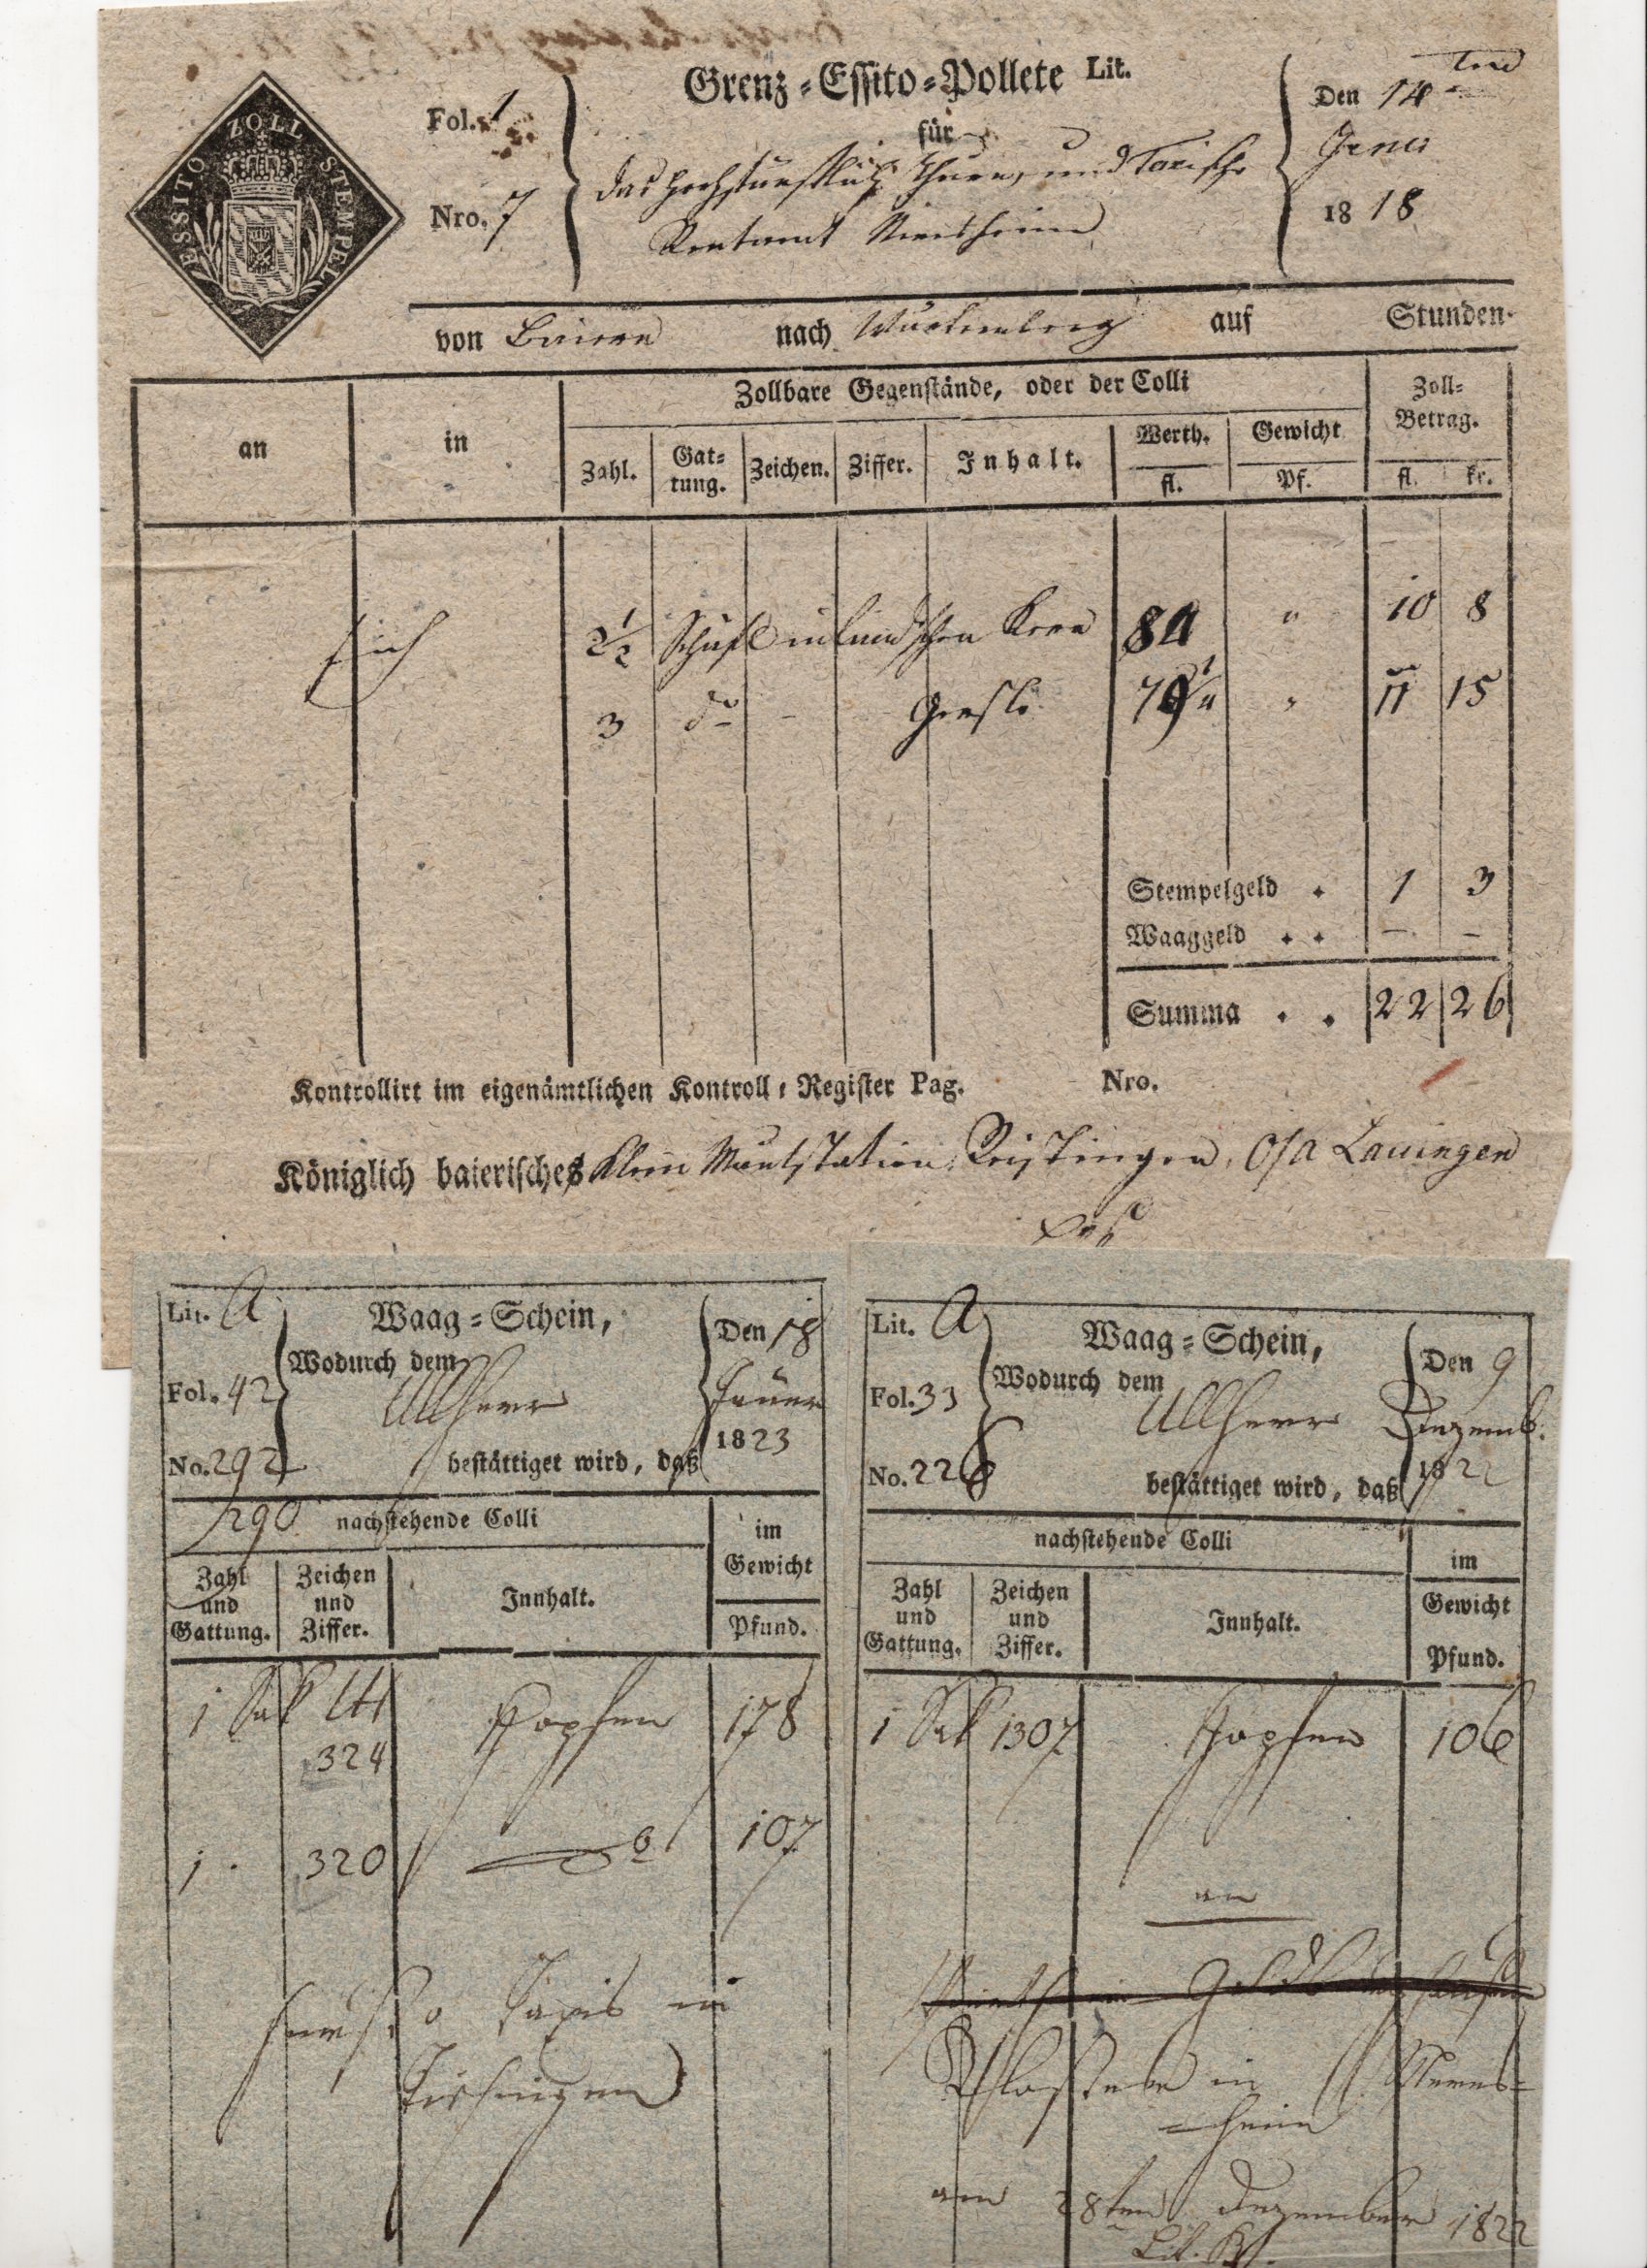 ESSITO ZOLL STEMPEL
Fol. 1
Nro. 7
Grenz-Essito-Pollete Lit.
für
das hochfürstlich Thurn, und Taxische
Rentamt Neresheim
Den 14ten
Jener
1818
von Baiern nach Würtemberg auf Stunden
an
in
Zollbare Gegenstände, oder der Colli
Zoll-
Betrag.
Zahl.
Gat-
tung.
Zeichen.
Ziffer.
Inhalt.
Werth.
fl.
Gewicht
Pf.
fl.
kr.
2 1/2 Schäfl inländischen Kern 84 " 10 8
3 do - Gerste 79 " 11 15
Stempelgeld . 1 3
Waaggeld . . - -
Summa . . 22 26
Kontrollirt im eigenämtlichen Kontroll-Register Pag. Nro.
Königlich baierisches Klein Mautstation Reistingen, O/A Lauingen
Lit. A
Fol. 42
No. 292
Waag-Schein,
Wodurch dem
Ullherr
bestättiget wird, daß
Den 18
Jäner
1823
290
nachstehende Colli
im
Gewicht
Pfund.
Zahl
und
Gattung.
Zeichen
und
Ziffer.
Innhalt.
1 Sak
324
Hopfen 178
1 . 320 do 107
Taxis in
Lit. A
Fol. 33
No. 226
Waag-Schein,
Wodurch dem
Ullherr
bestättiget wird, daß
Den 9
Dezemb.
1822
nachstehende Colli
im
Gewicht
Pfund.
Zahl
und
Gattung.
Zeichen
und
Ziffer.
Innhalt.
1 Sak 1307 Hopfen 106
an
in Neres-
=heim
am 28ten Dezember 1822
Lit.